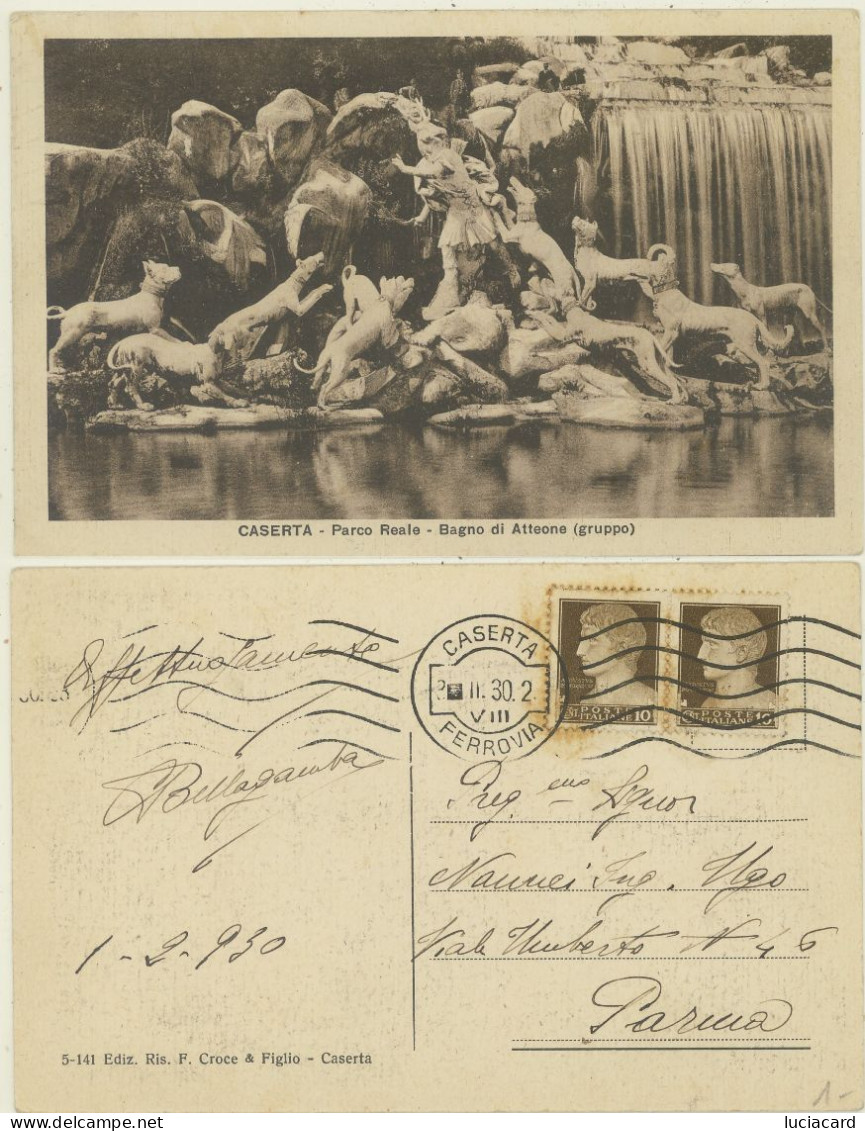 CASERTA - Parco Reale - Bagno di Atteone (gruppo)
Affettuosamente
ABellagamba
1-2-930
5-141 Ediz. Ris. F. Croce & Figlio - Caserta
CASERTA
II. 30. 2
VIII
FERROVIA
POSTE
ITALIANE 10
POSTE
ITALIANE 10
Preg.mo Signor
Nannei Ing. Ugo
Viale Umberto N 46
Parma
1-
luciacard